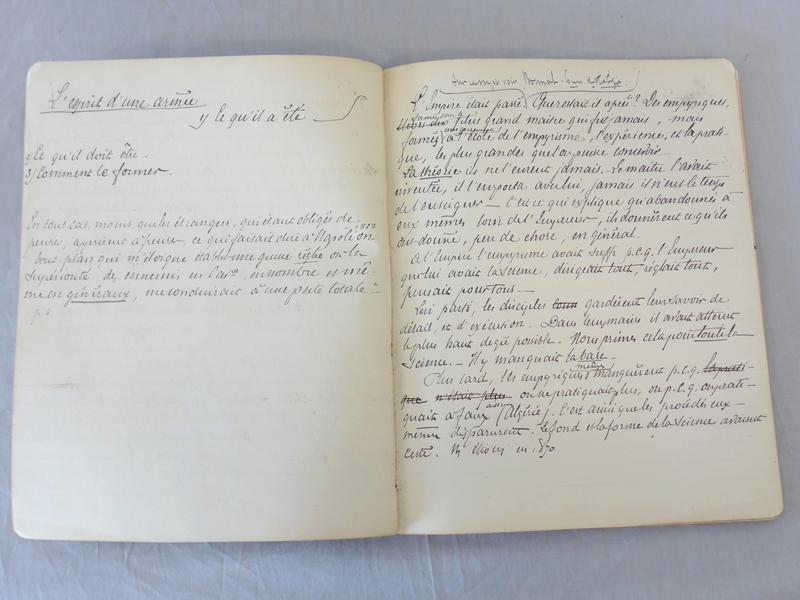 L'esprit d'une armée
1/ ce qu'il a été
2/ ce qu'il doit être.
3/ Comment le former.
En tout cas, moins que les étrangers, qui étant obligés de
penser, apprirent à penser, ce qui faisait dire à Napoléon 1813
tout plan qui m'éloigne établi une guerre réglée où la
supériorité des ennemis, en Cavie, en nombre et mê-
me en généraux, me conduirait à une perte totale -
L'Empire était passé. Que restait-il après? Des empyriques,
du plus grand maître qui fût jamais, mais
formés uniquement à l'école de l'empyrisme, l'expérience, et la prati-
que, les plus grandes que l'on puisse concevoir.
La théorie ils ne l'eurent jamais. Le maître l'avait
inventée, il l'emporta avec lui, jamais il n'eut le temps
de l'enseigner - C'est ce qui explique qu'abandonnés à
eux mêmes loin de l'Empereur, ils donnèrent ce qu'ils
ont donné, peu de chose, en général.
A l'Empire l'empyrisme avait suffi p.c.q. l'Empereur
que lui avait la science, dirigeait tout, réglait tout,
pensait pour tous -
Lui parti, les disciples gardèrent leur savoir de
détail, et d'exécution. Dans leurs mains il avait atteint
le plus haut degré possible - Nous prîmes cela pour toute la
Science. - Il y manquait la base -
Plus tard, les empyriques mêmes manquèrent p.c.q. la prati-
que n'était plus on ne pratiquait plus, ou p.c.q. on prati-
quait à faux aussi (Algérie). C'est ainsi que les procédés eux-
mêmes disparurent. Le fond et la forme de la science avaient
cessé. en 1870